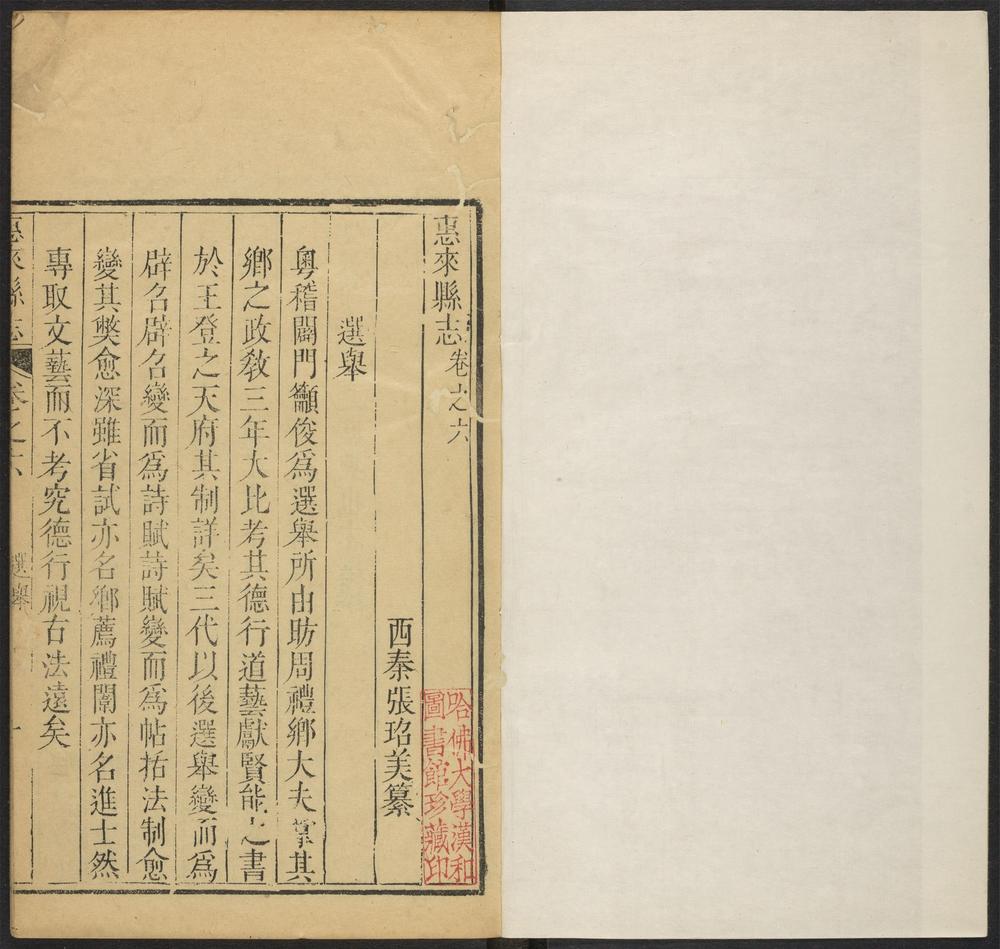 惠來縣志卷之六
西秦張珆美纂
選舉
粵稽闢門籲俊爲選舉所由昉周禮鄉大夫掌其
鄉之政敎三年大比考其德行道藝獻賢能之書
於王登之天府其制詳矣三代以後選舉變而爲
辟召辟召變而爲詩賦詩賦變而爲帖括法制愈
變其獘愈深雖省試亦名鄉薦禮闈亦名進士然
專取文藝而不考究德行視古法遠矣
惠來縣志 卷之六 選舉 一
哈佛大學漢和
圖書館珍藏印